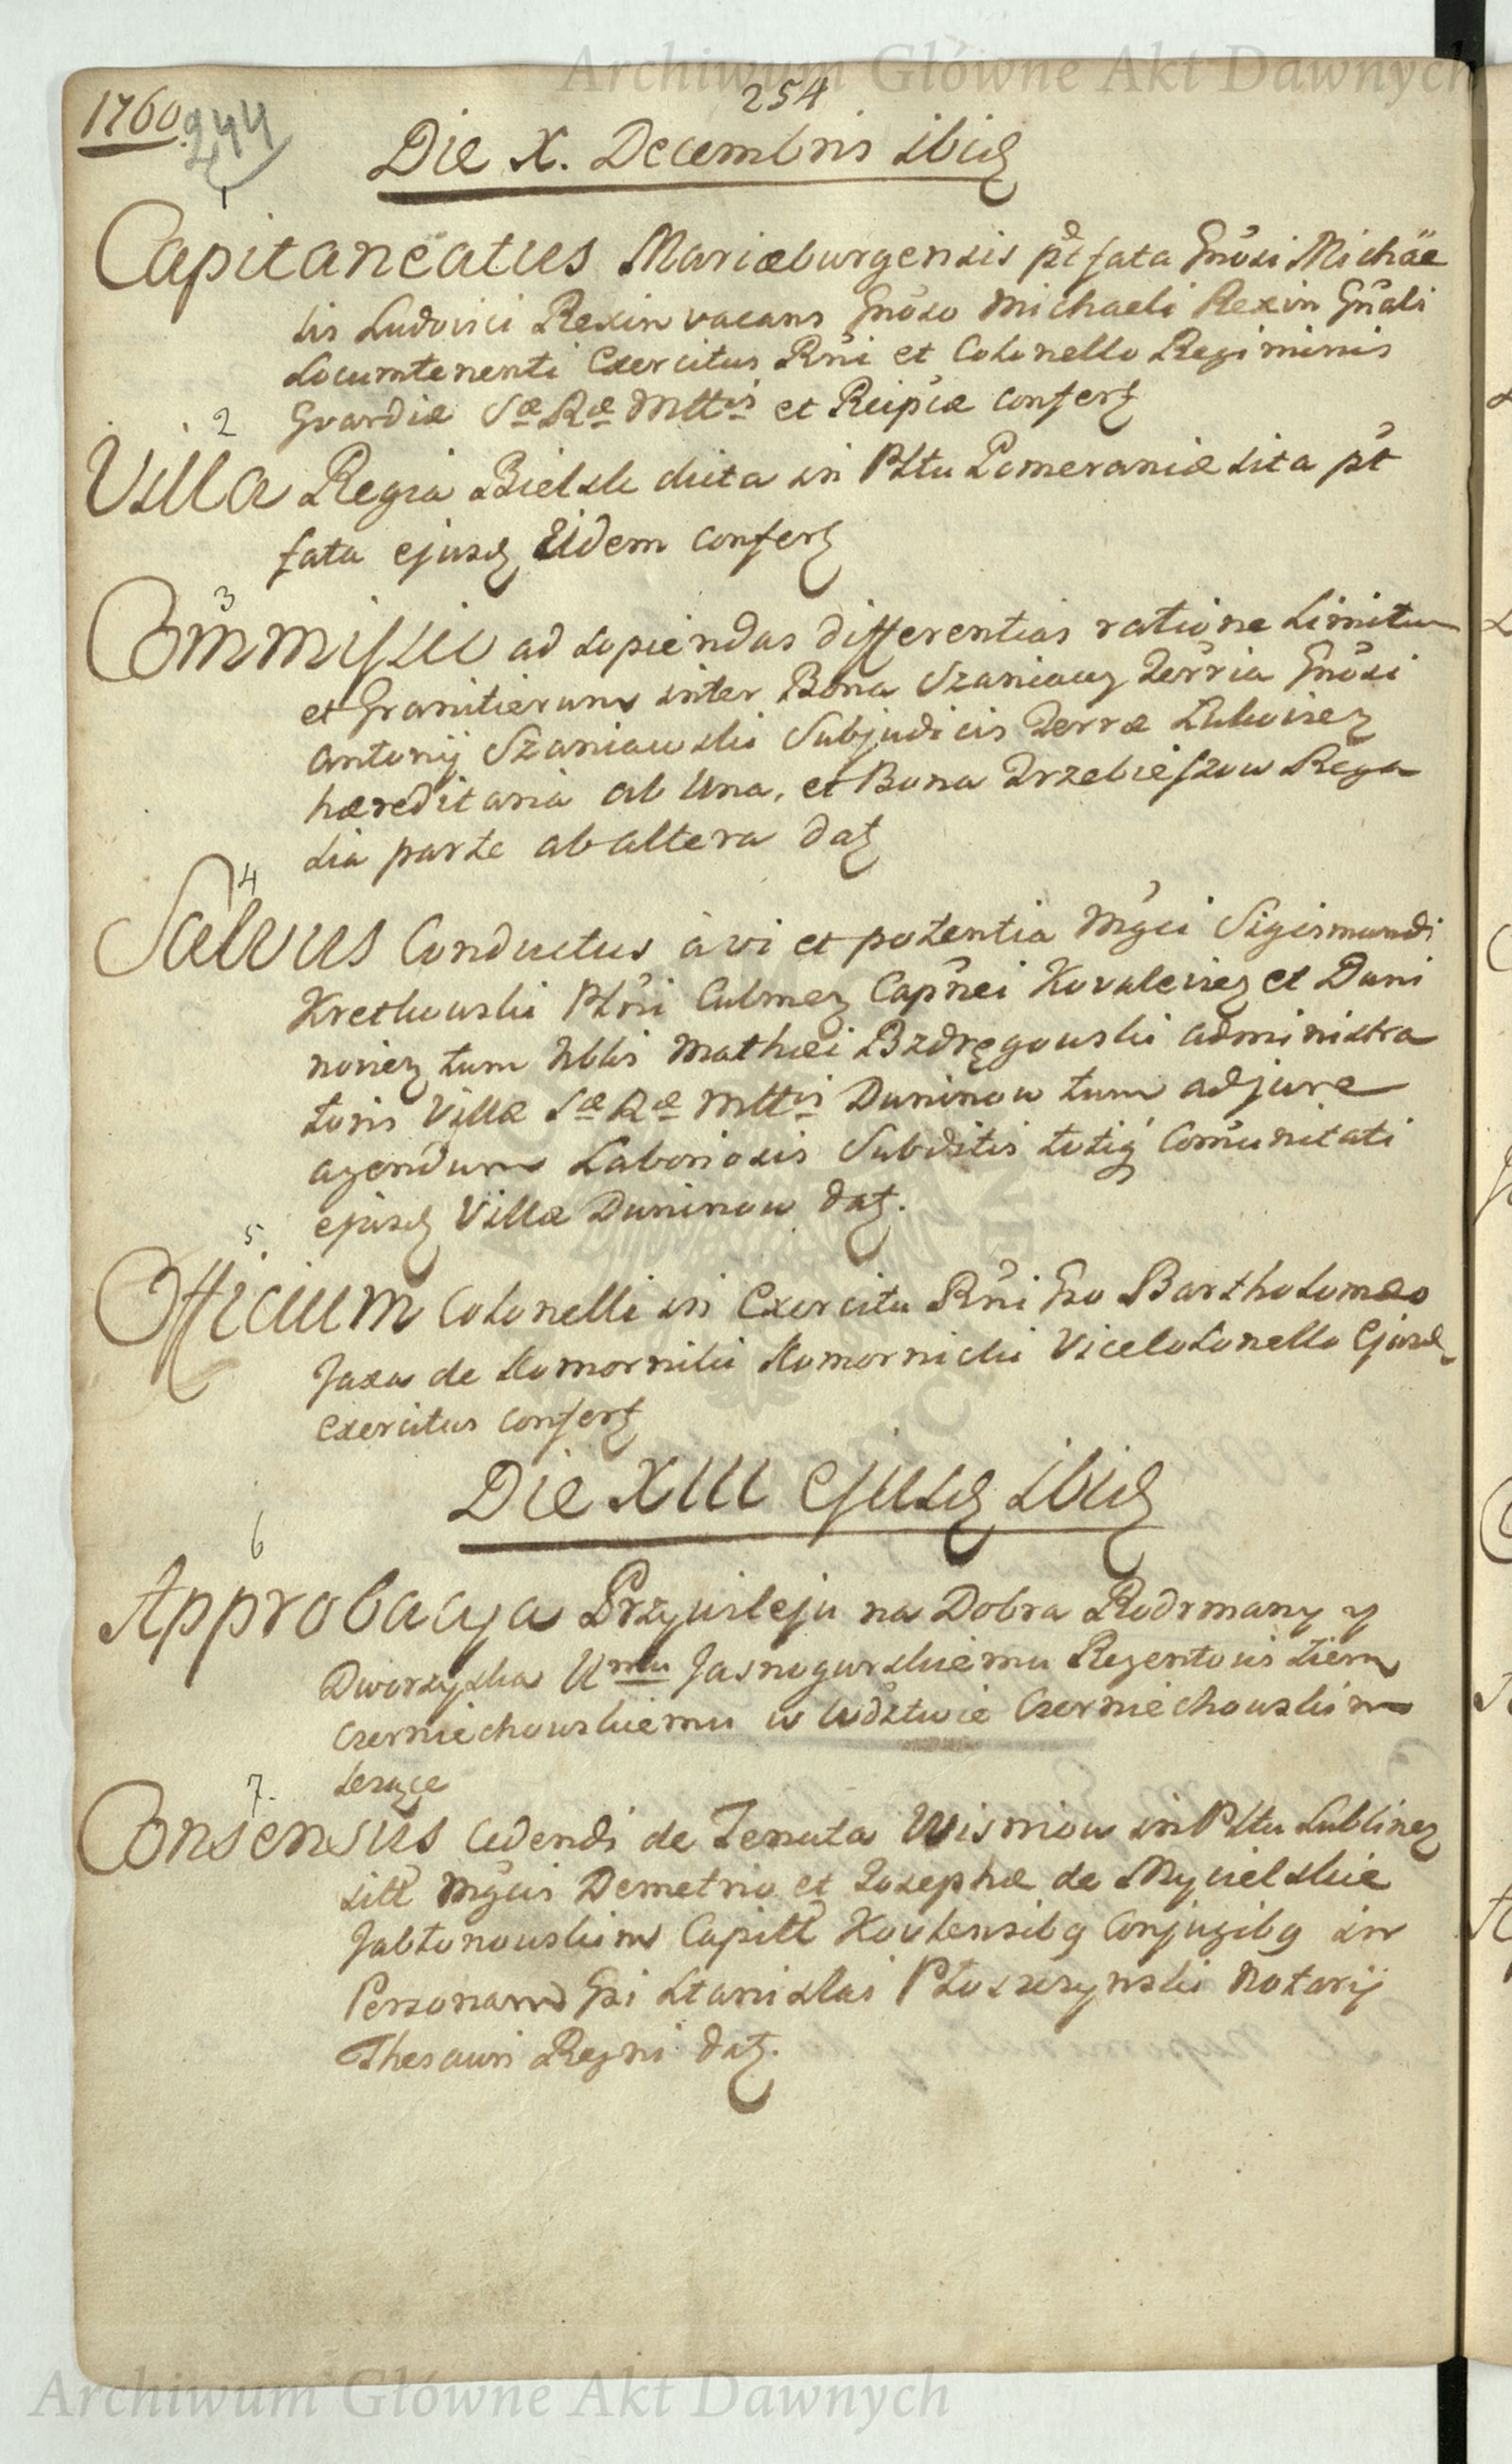 Archiwum Główne Akt Dawnych
1760.
244
254
Die X. Decembris ibid
1
Capitaneatus Mariæburgensis pt fata Gnosi Michäe
lis Ludovici Rexin vacans Gnoso Michaeli Rexin Gnali
Locumtenenti Exercitus Rni et Colonello Regiminis
Gvardiæ Sæ Ræ Mttis et Reipcæ Confert
2
Villa Regia Bielsk dicta in Pltu Pomeraniæ sita pt
fata ejusd Eidem confert
3
Commissii ad sopiendas differentias ratione Limitum
et Granitierum inter Bona Szaniawy Terria Gnosi
Antonij Szaniawski Subjudicis Terræ Lukovien
hæreditaria ab Una, et Bona Trzebieszow Rega
lia parte ab altera dat
4
Salvus Conductus à vi et potentia Mgci Sigismundi
Kretkowski Pltni Culmen Capnei Kovalevien et Duni
novien tum Nblis Mathæi Bzdręgowski administra
toris Villæ Sæ Ræ Mttis Duninow tum ad jure
agendum Laboriosis Subditis totiq Comunitati
ejusd Villæ Duninow dat.
5.
Officium Colonelli in Exercitu Rni Gso Bartholomæo
Jaxa de Komornik Komornicki Vicecolonello Ejusd
Exercitus confert
Die XIII ejusd ibid
6
Approbacya Przywileju na Dobra Rodrmany y
Dworzyska Umu Jasnogurskiemu Regentowi Ziem
Czerniechowskiemu w Wdztwie Czerniechowskim
lezące
7.
Consensus Cedendi de Tenuta Wisniow in Pltu Lublinen
sitt Mgcis Demetrio et Josephæ de Mycielskie
Jabłonowskim Capitt Kovlensibq Conjugibq in
Personam Gsi Stanislai Płoszczynski Notarij
Thesauri Regni dat.
Archiwum Główne Akt Dawnych